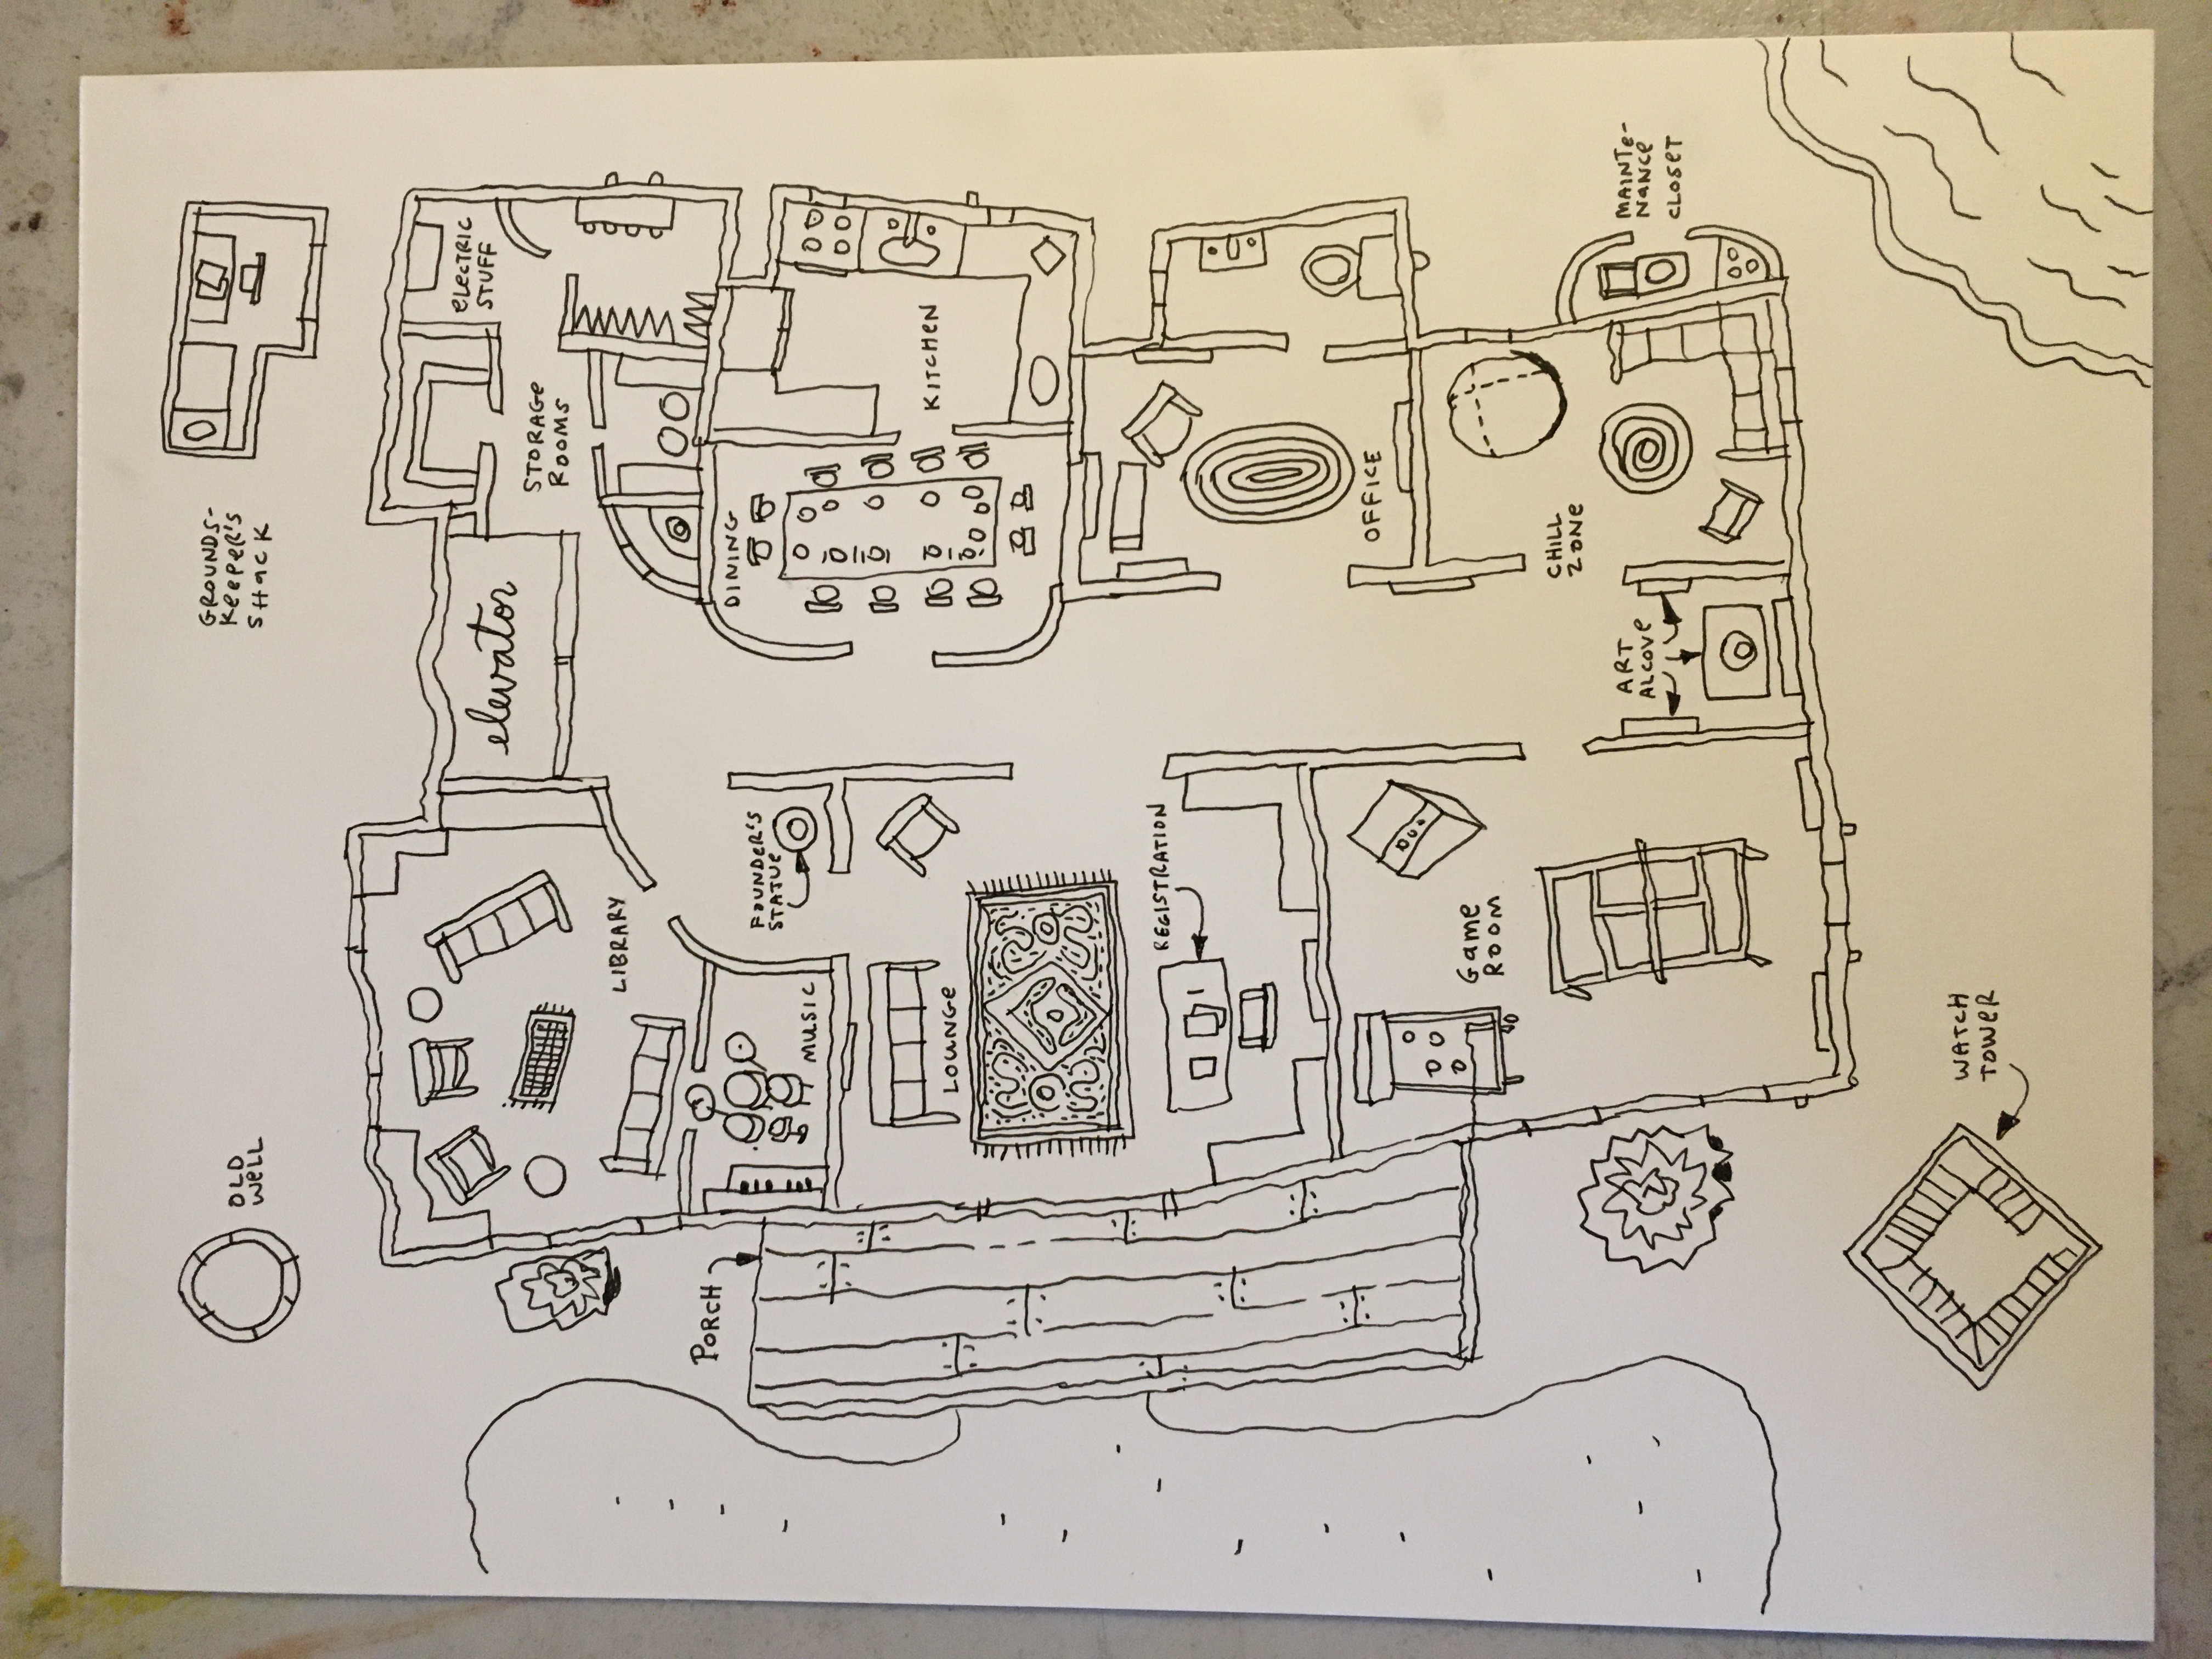 OLD
WELL
GROUNDS-
KEEPER'S
SHACK
elevator
ELECTRIC
STUFF
STORAGE
ROOMS
LIBRARY
PORCH
DINING
FOUNDER'S
STATUE
MUSIC
KITCHEN
LOUNGE
REGISTRATION
OFFICE
GAME
ROOM
CHILL
ZONE
ART
ALCOVE
MAINTE-
NANCE
CLOSET
WATCH
TOWER